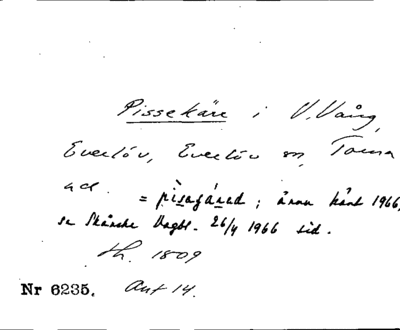 Pissekäre i V. Vång,
Everlöv, Everlöv sn, Torna
hd. = pisagárad; ännu känt 1966,
se Skånska Dagbl. 26/4 1966 sid.
Lh. 1809
Nr 6235. Ant 14.